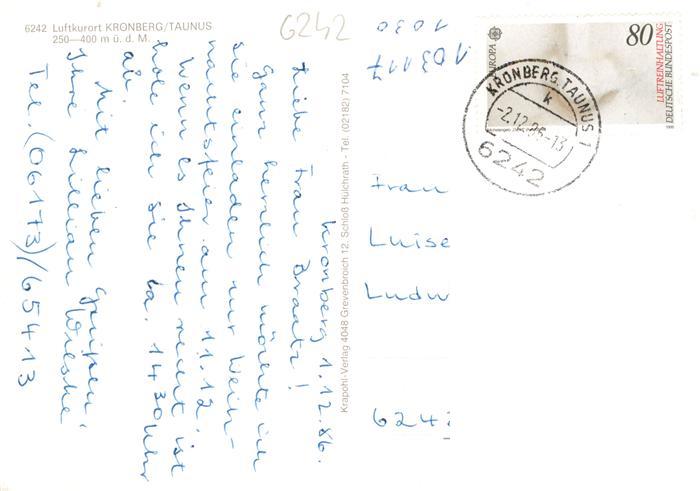 6242 Luftkurort KRONBERG/TAUNUS
250—400 m ü. d. M.
6242
Kronberg 1.12.86.
Liebe Frau Braatz!
Ganz herzlich möchte ich
Sie einladen zur Weih-
nachtsfeier am 11.12.
Wenn es Ihnen recht ist
hole ich Sie ca. 14 30 Uhr
ab.
Mit lieben Grüßen
Ihre Lillian
Tel. (06173)/65413
Krapohl-Verlag 4048 Grevenbroich 12, Schloß Hülchrath - Tel. (02182) 7104
1030
103117
EUROPA
80
LUFTREINHALTUNG
DEUTSCHE BUNDESPOST
KRONBERG, TAUNUS 1
k
-2.12.86-13
6242
Frau
Luise
Ludw
624